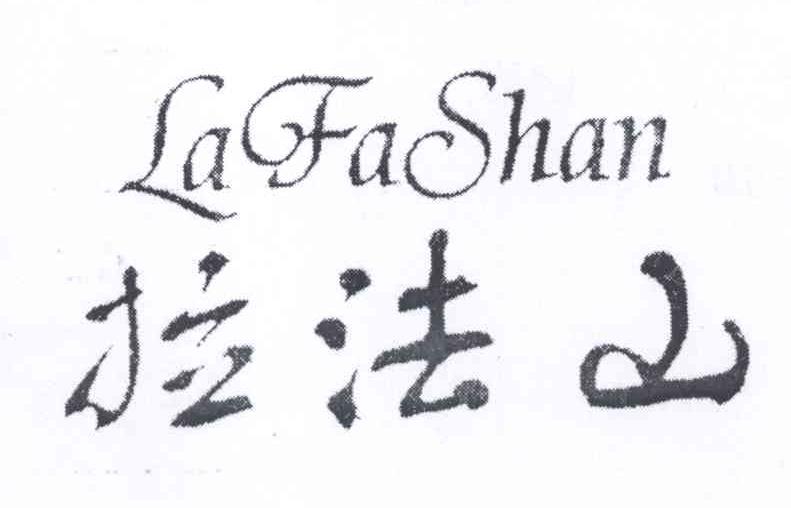 LaFaShan
拉法山